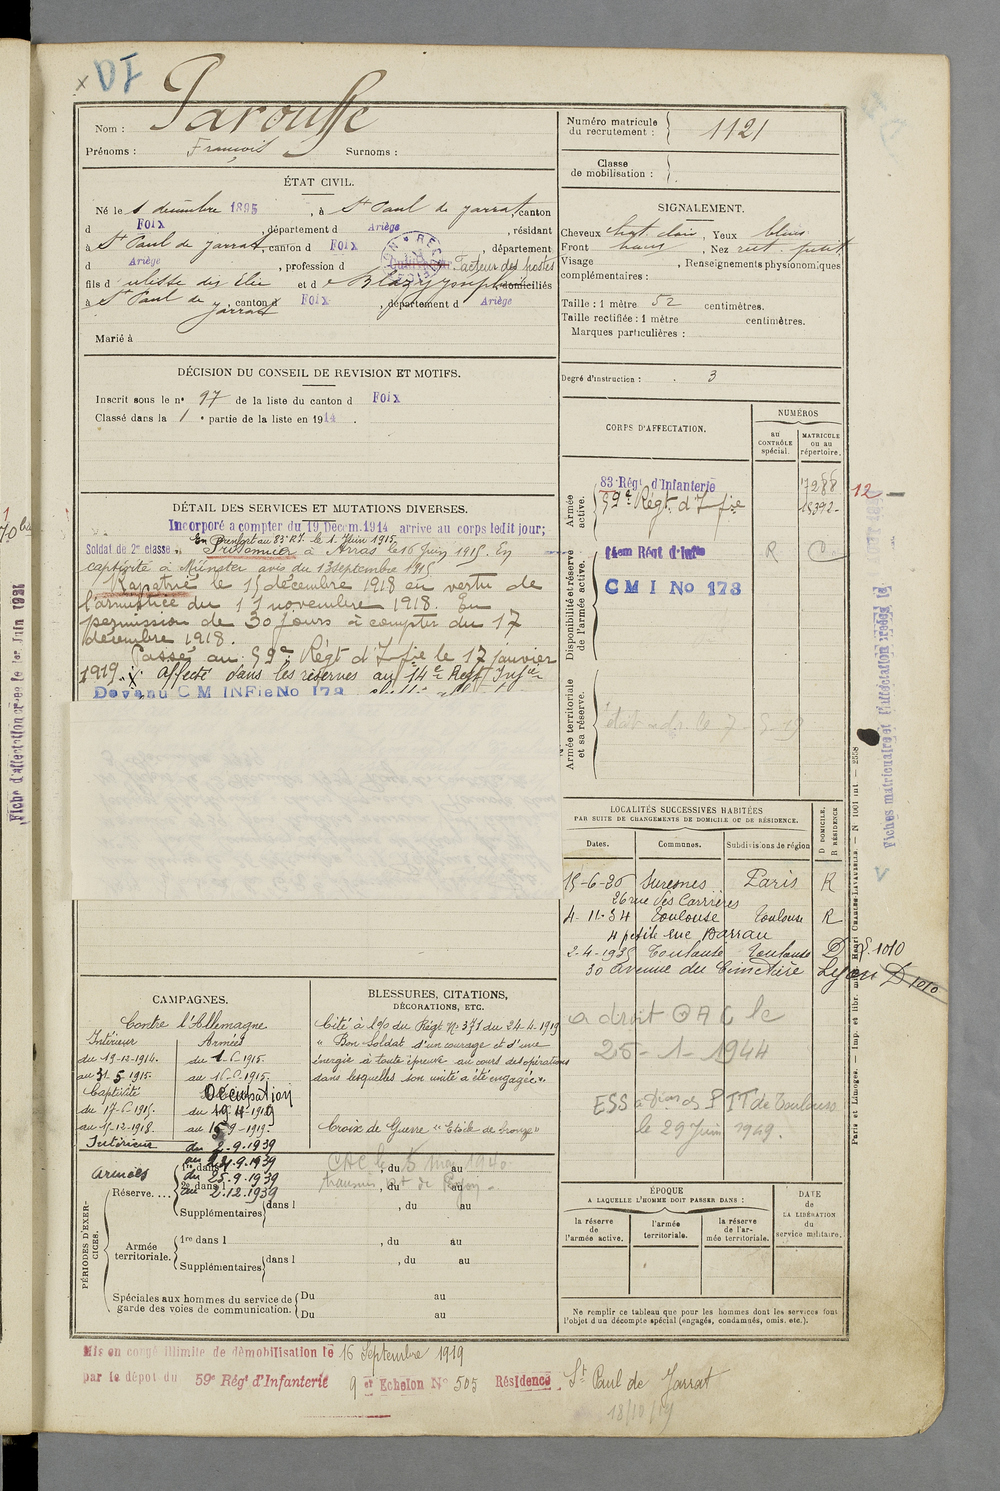 DI
Nom : Parousse
Prénoms : François Surnoms :
Numéro matricule du recrutement : 1121
Classe de mobilisation :
ÉTAT CIVIL.
Né le 1 décembre 1895, à St Paul de Jarrat, canton
d Foix, département d Ariège, résidant
à St Paul de Jarrat, canton d Foix, département
d Ariège, profession d Facteur des postes
fils d' ulisse dis Elie et d e Blazy Joseph domiciliés
à St Paul de Jarrat, canton d Foix, département d Ariège
Marié à
SIGNALEMENT.
Cheveux chat clair, Yeux bleus
Front haus, Nez rect. petit
Visage , Renseignements physionomiques
complémentaires :
Taille : 1 mètre 52 centimètres.
Taille rectifiée : 1 mètre centimètres.
Marques particulières :
Degré d'instruction : 3
DÉCISION DU CONSEIL DE REVISION ET MOTIFS.
Inscrit sous le n° 97 de la liste du canton d Foix
Classé dans la 1 e partie de la liste en 1914.
CORPS D'AFFECTATION.
NUMÉROS
au CONTRÔLE spécial.
MATRICULE ou au répertoire.
Armée active.
83 Régt d'Infanterie 7288
59e Régt d'Infie 18392
12
Disponibilité et réserve de l'armée active.
14em Régt d'Infie R C
CMI No 173
Armée territoriale et sa réserve.
DÉTAIL DES SERVICES ET MUTATIONS DIVERSES.
Incorporé a compter du 19 Décem. 1914, arrive au corps ledit jour;
En Renfort au 83e R.I. le 1. Juin 1915.
Soldat de 2e classe. Prisonnier à Arras le 16 Juin 1915. En
captivité à Münster avis du 13 septembre 1915
Rapatrié le 15 décembre 1918 en vertu de
l'armistice du 11 novembre 1918. En
permission de 30 jours à compter du 17
décembre 1918.
Passé au 59e Régt d'Infie le 17 janvier
1919. Affecté dans les réserves au 14e Régt Infie
Devenu CM INFie No 173
LOCALITÉS SUCCESSIVES HABITÉES
PAR SUITE DE CHANGEMENTS DE DOMICILE OU DE RÉSIDENCE.
Dates. Communes. Subdivisions de région D DOMICILE, R RÉSIDENCE
15-6-26 Suresnes Paris R
26 rue des Carrières
4-11-34 Toulouse Toulouse R
4 petite rue Barrau
2-4-1935 Toulouse Toulouse D
30 avenue du Cimetière Lyon D 1010
a droit OAC le
25-1-1944
PTT de Toulouse
le 29 Juin 1949.
CAMPAGNES.
Contre l'Allemagne
Intérieur Armées
du 19-12-1914. du 1-6-1915.
au 31.5.1915. au 16-6-1915.
Captivité Occupation
du 17-6-1915.
au 15-12-1918. au 15-9-1919.
Intérieur du 2-9-1939
Armées du 25.9.1939
au 2.12.1939
BLESSURES, CITATIONS,
DÉCORATIONS, ETC.
Cité à l'o du Régt No 371 du 24-4-1919
" Bon Soldat d'un courage et d'une
énergie à toute épreuve au cours des opérations
dans lesquelles son unité a été engagée".
Croix de Guerre "Etoile de bronze"
PÉRIODES D'EXERCICES.
Réserve....
1re dans l , du au
2e dans l , du au
Supplémentaires dans l , du au
Armée territoriale.
1re dans l , du au
Supplémentaires dans l , du au
Spéciales aux hommes du service de garde des voies de communication.
Du au
Du au
ÉPOQUE
A LAQUELLE L'HOMME DOIT PASSER DANS :
la réserve de l'armée active.
l'armée territoriale.
la réserve de l'armée territoriale.
DATE de LA LIBÉRATION du service militaire.
Ne remplir ce tableau que pour les hommes dont les services font
l'objet d'un décompte spécial (engagés, condamnés, omis, etc.).
Mis en congé illimité de démobilisation le 16 Septembre 1919
par le dépôt du 59e Régt d'Infanterie 9 er Echelon No 505 Résidence St Paul de Jarrat
18/10/19
Fiche d'affectation créée le 1er Juin 1921
Paris et Limoges. — Imp. et libr. militaires Henri CHARLES-LAVAUZELLE. — N° 1001 int. — 2558